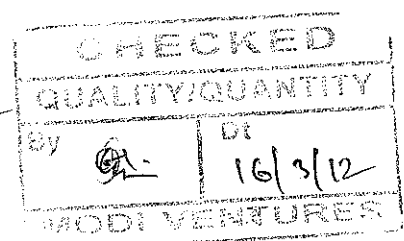 CHECKED
QUALITY/QUANTITY
By Dt
16/3/12
MODI VENTURES